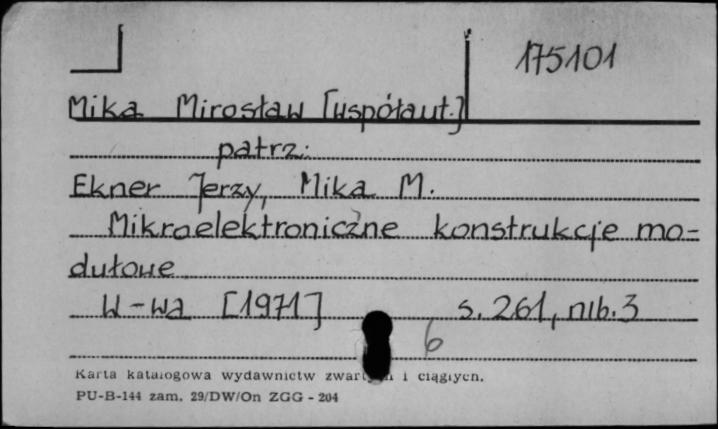 175101
Mika Mirosław [współaut.]
patrz:
Ekner Jerzy, Mika M.
Mikroelektroniczne konstrukcje mo=
dułowe
W-wa [1971] s. 261, nlb. 3
6
Karta katalogowa wydawnictw i ciągłych.
PU-B-144 zam. 29/DW/On ZGG - 204